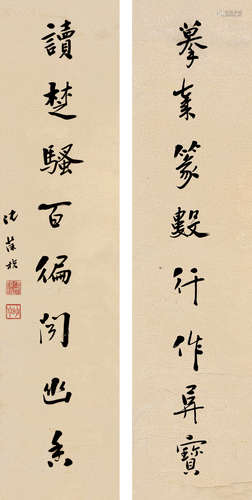 摹秦篆數行作異寶
讀楚騷百徧聞幽香
沈葆楨